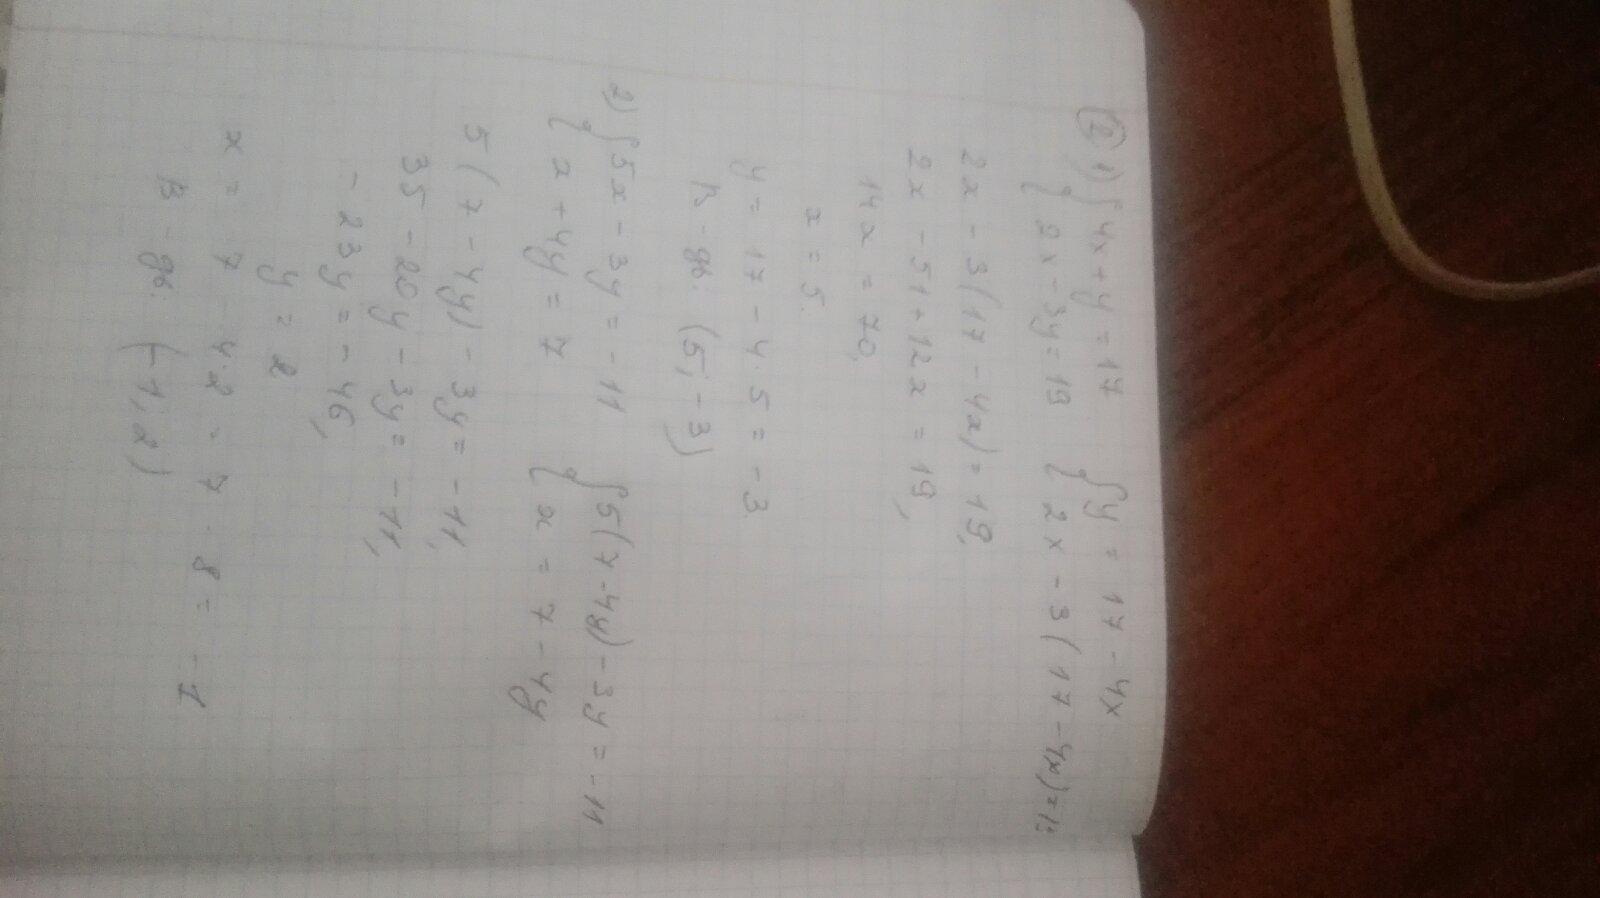 ② 1) { 4x + y = 17 { y = 17 - 4x
{ 2x - 3y = 19 { 2x - 3(17 - 4x) = 19
2x - 3(17 - 4x) = 19,
2x - 51 + 12x = 19,
14x = 70,
x = 5.
y = 17 - 4·5 = -3.
В-дь: (5; -3)
2) { 5x - 3y = -11 { 5(7 - 4y) - 3y = -11
{ x + 4y = 7 { x = 7 - 4y
5(7 - 4y) - 3y = -11,
35 - 20y - 3y = -11,
- 23y = -46,
y = 2
x = 7 - 4·2 = 7 - 8 = -1
В-дь: (-1; 2)